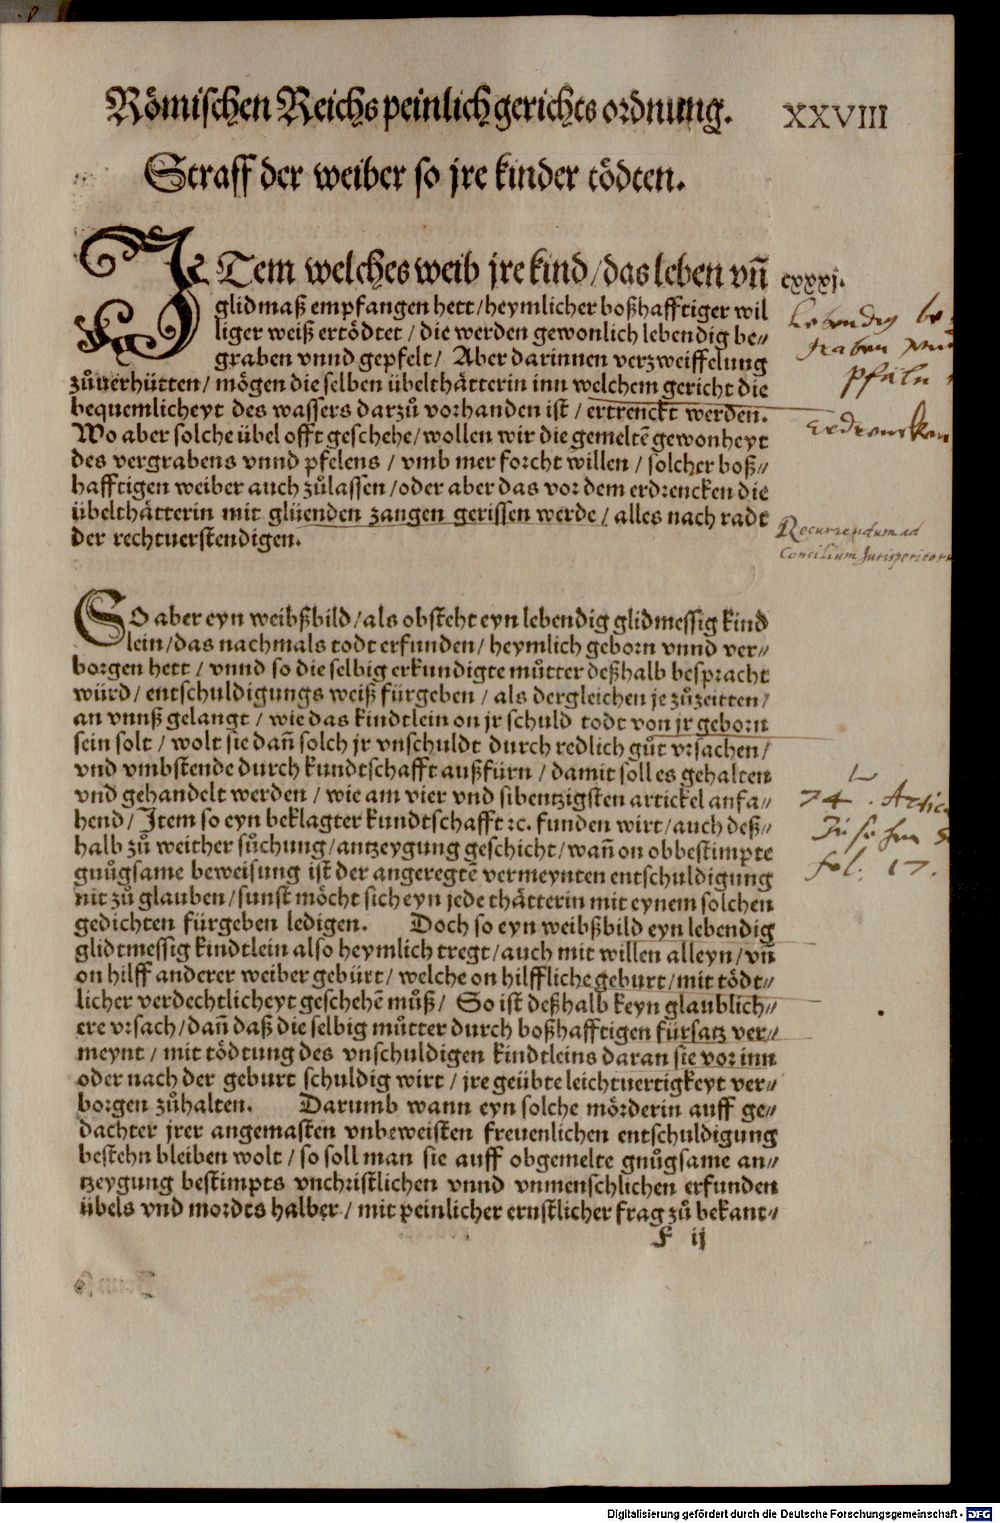 Römischen Reichs peinlich gerichts ordnung. XXVIII
Straff der weiber so jre kinder tödten.
ITem welches weib jre kind / das leben vnd̄ cxxxj.
glidmaß empfangen hett / heymlicher boßhafftiger wil
liger weiß ertödtet / die werden gewonlich lebendig be⸗
graben vnnd gepfelt / Aber darinnen verzweiffelung
zůuerhütten / mögen die selben übelthätterin inn welchem gericht die
bequemlicheyt des wassers darzů vorhanden ist / ertrenckt werden.
Wo aber solche übel offt geschehe / wollen wir die gemeltē gewonheyt
des vergrabens vnnd pfelens / vmb mer forcht willen / solcher boß⸗
hafftigen weiber auch zůlassen / oder aber das vor dem erdrencken die
übelthätterin mit glüenden zangen gerissen werde / alles nach radt
der rechtuerstendigen.
Lebendig be
graben vnd
pfäln
Erdrencken
Recurrendum ad
Consilium Jurisperitoru
SO aber eyn weibßbild / als obsteht eyn lebendig glidmessig kind
lein / das nachmals todt erfunden / heymlich geborn vnnd ver⸗
borgen hett / vnnd so die selbig erkundigte můtter deßhalb bespracht
würd / entschuldigungs weiß fürgeben / als dergleichen je zůzeitten /
an vnnß gelangt / wie das kindtlein on jr schuld todt von jr geborn
sein solt / wolt sie dan̄ solch jr vnschuldt durch redlich gůt vrsachen /
vnd vmbstende durch kundtschafft außfürn / damit soll es gehalten
vnd gehandelt werden / wie am vier vnd sibentzigsten artickel anfa⸗
hend / Item so eyn beklagter kundtschafft ꝛc. funden wirt / auch deß⸗
halb zů weither sůchung / antzeygung geschicht / wan̄ on obbestimpte
gnůgsame beweisung ist der angeregtē vermeynten entschuldigung
nit zů glauben / sunst möcht sich eyn jede thätterin mit eynem solchen
gedichten fürgeben ledigen. Doch so eyn weibßbild eyn lebendig
glidtmessig kindtlein also heymlich tregt / auch mit willen alleyn / vn̄
on hilff anderer weiber gebürt / welche on hilffliche geburt / mit tödt⸗
licher verdechtlicheyt geschehē můß / So ist deßhalb keyn glaublich⸗
ere vrsach / dan̄ daß die selbig můtter durch boßhafftigen fürsatz ver⸗
meynt / mit tödtung des vnschuldigen kindtleins daran sie vor inn
oder nach der geburt schuldig wirt / jre geübte leichtuertigkeyt ver⸗
borgen zůhalten. Darumb wann eyn solche mörderin auff ge⸗
dachter jrer angemasten vnbeweisten freuenlichen entschuldigung
bestehn bleiben wolt / so soll man sie auff obgemelte gnůgsame an⸗
tzeygung bestimpts vnchristlichen vnnd vnmenschlichen erfunden
übels vnd mordts halber / mit peinlicher ernstlicher frag zů bekant⸗
74. Artic
Zu sehen
fol. 17.
F ij
Digitalisierung gefördert durch die Deutsche Forschungsgemeinschaft - DFG